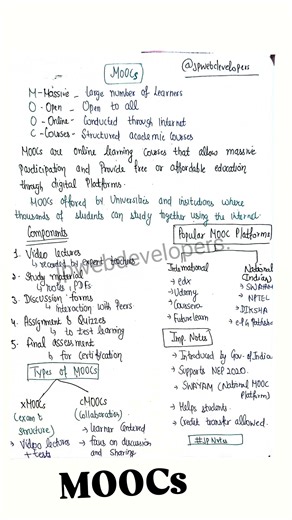 @jpwebdevelopers
MOOCs
M - Massive - Large number of learners
O - Open - Open to all
O - Online - Conducted through Internet
C - Courses - Structured academic courses
MOOCs are online learning courses that allow massive
Participation and Provide free or affordable education
through digital Platforms.
MOOCs offered by Universities and institutions where
thousands of students can study together using the internet.
Components
1. Video lectures
↳ recorded by expert teachers
2. Study material
↳ notes, PDFs
3. Discussion forms
↳ Interaction with Peers
4. Assignment & Quizzes
↳ to test learning
5. Final assessment
↳ for certification
Popular MOOC Platforms
International
→ edx
→ Udemy
→ Coursera
→ Future learn
National
(Indian)
→ SWAYAM
→ NPTEL
→ DIKSHA
→ e-PG Pathshala
jpwebdevelopers.
Types of MOOCs
xMOOCs
(exam &
structure)
→ Video lectures
+ tests
cMOOCs
(Collaboration)
→ Learner Centered
→ focus on discussion
and sharing
Imp. Notes
→ Introduced by Gov. of India
→ Supports NEP 2020.
→ SWAYAM (National MOOC
Platform)
→ Helps students.
→ Credit transfer allowed.
#JP Notes
MOOCs